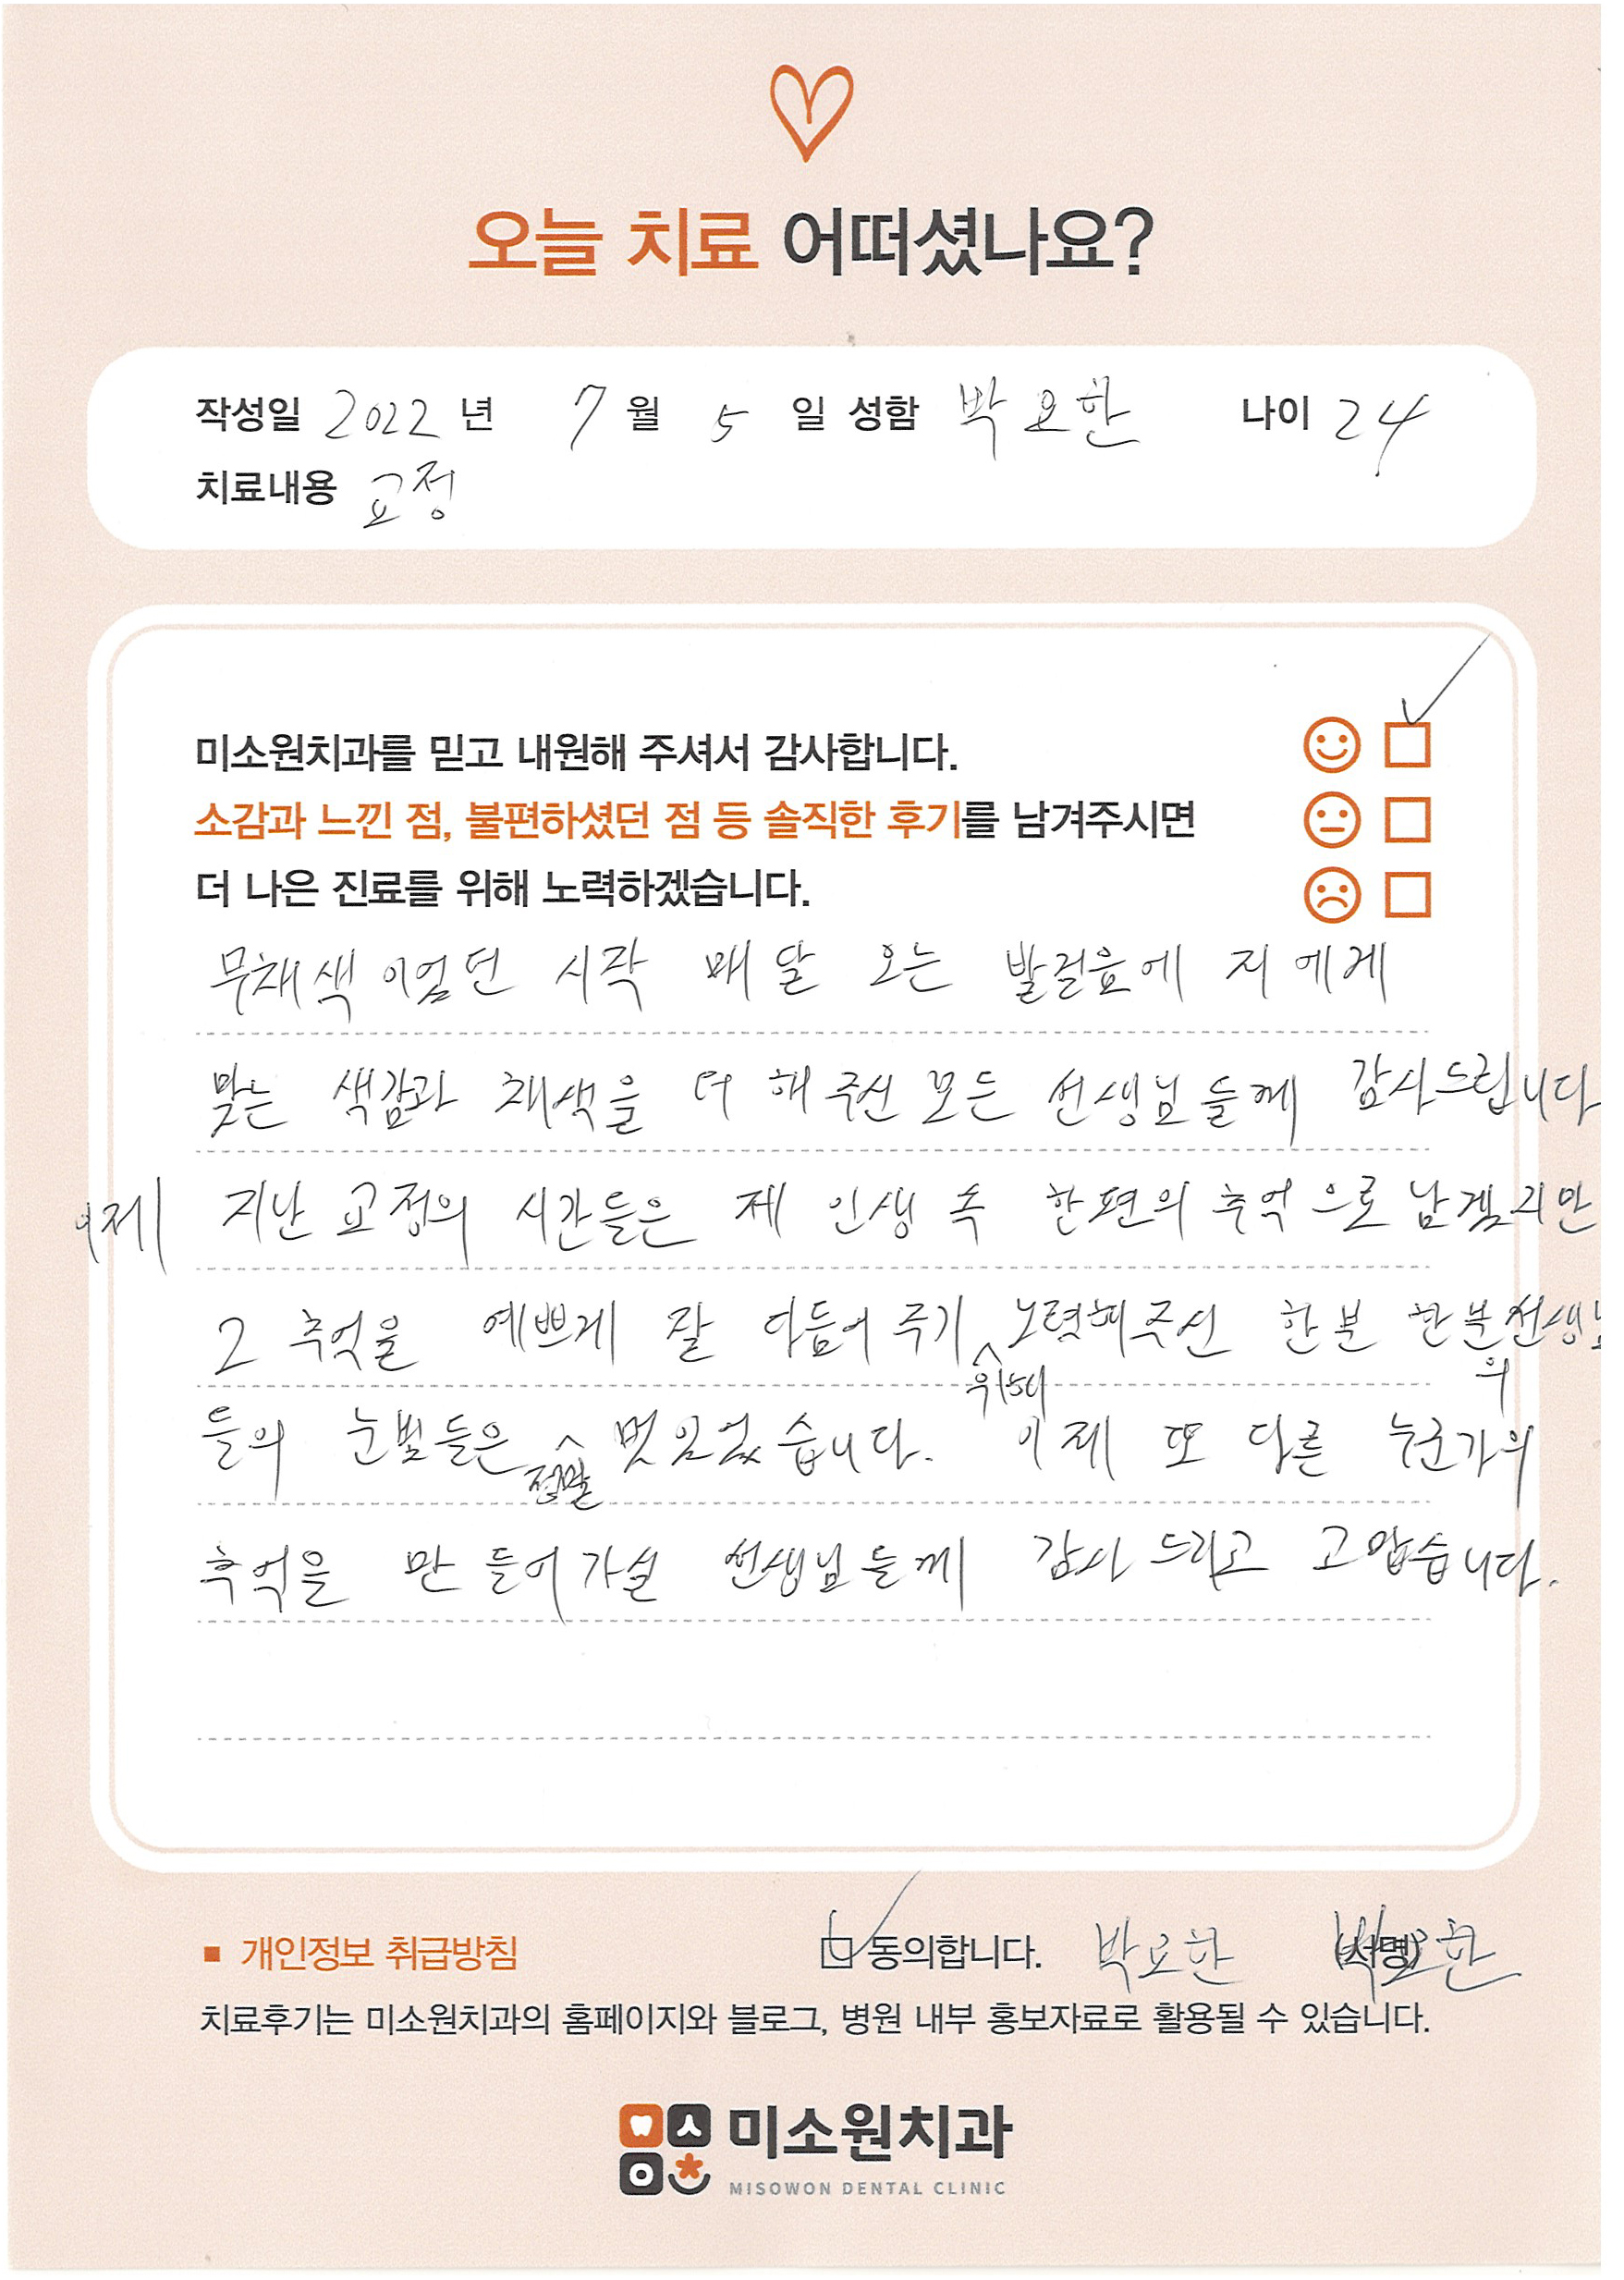 오늘 치료 어떠셨나요?
작성일 2022 년 7 월 5 일 성함 박요한 나이 24
치료내용 교정
미소원치과를 믿고 내원해 주셔서 감사합니다.
소감과 느낀 점, 불편하셨던 점 등 솔직한 후기를 남겨주시면
더 나은 진료를 위해 노력하겠습니다.
무채색이었던 시작 매달 오는 발걸음에 저에게
맞는 색감과 채색을 더해주신 모든 선생님들께 감사드립니다
이제 지난 교정의 시간들은 제 인생 속 한편의 추억으로 남겠지만
그 추억을 예쁘게 잘 다듬어 주기 위해 노력해주신 한분 한분 선생님
들의 눈빛들은 정말 멋있었습니다. 이제 또 다른 누군가의
추억을 만들어가실 선생님들께 감사드리고 고맙습니다.
■ 개인정보 취급방침 동의합니다. 박요한 (서명) 박요한
치료후기는 미소원치과의 홈페이지와 블로그, 병원 내부 홍보자료로 활용될 수 있습니다.
미소원치과
MISOWON DENTAL CLINIC